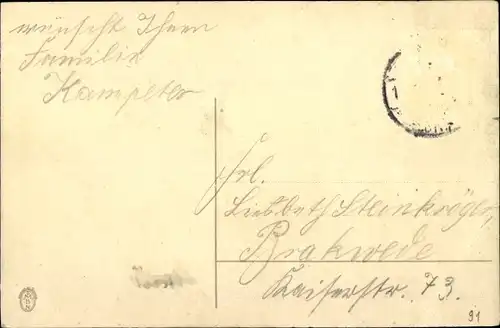 wünscht Ihnen
Familie
Kampeter
1
Frl.
Lisbeth Steinkröger,
Brakwede
Kaiserstr. 73.
91